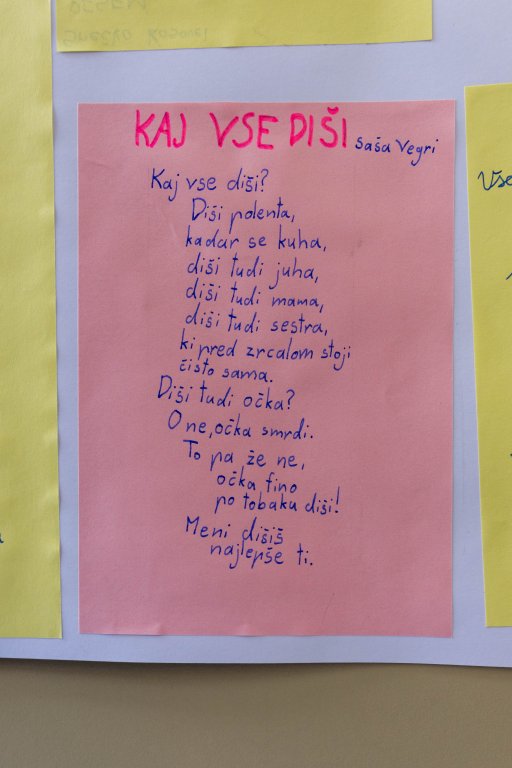 Srečko Kosovel
KAJ VSE DIŠI saša Vegri
Kaj vse diši?
Diši polenta,
kadar se kuha,
diši tudi juha,
diši tudi mama,
diši tudi sestra,
ki pred zrcalom stoji
čisto sama.
Diši tudi očka?
O ne, očka smrdi.
To pa že ne,
očka fino
po tobaku diši!
Meni dišiš
najlepše ti.
Vse